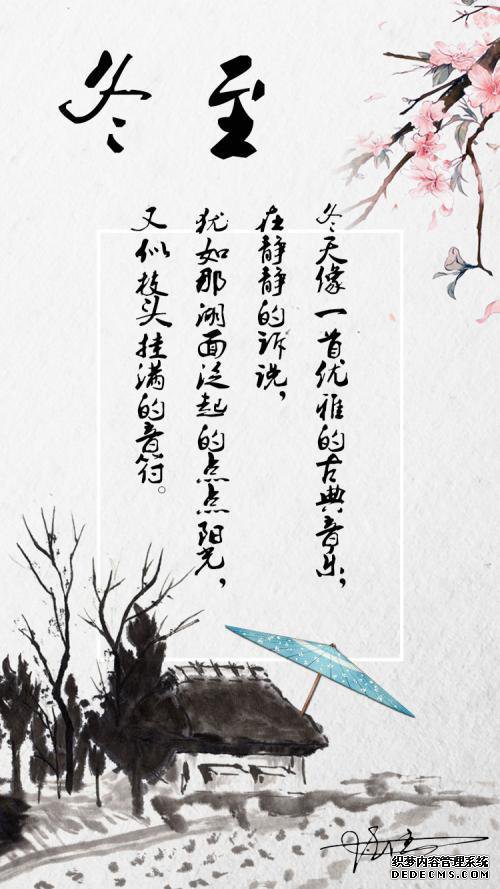 冬至
冬天像一首优雅的古典音乐，
在静静的诉说，
犹如那湖面泛起的点点阳光，
又似枝头挂满的音符。
织梦内容管理系统
DEDECMS.COM